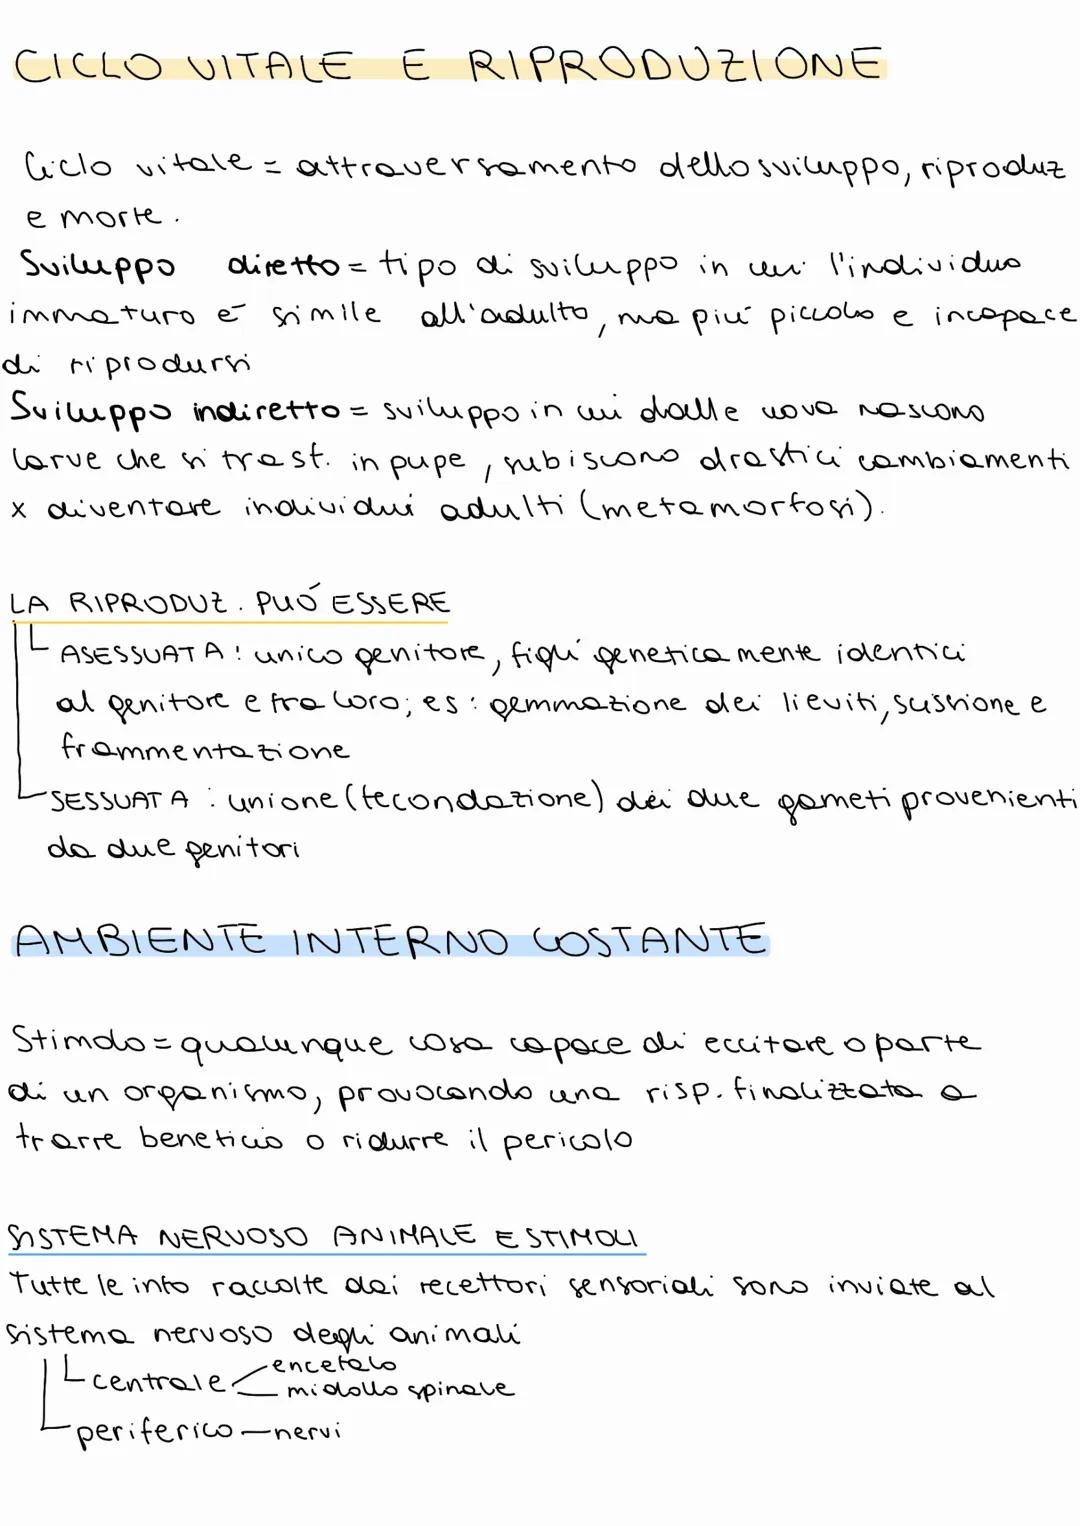 CICLO VITALE E RIPRODUZIONE
Ciclo vitale = attraversamento dello sviluppo, riproduz
e morte.
Sviluppo diretto = tipo di sviluppo in cui l'individuo
immaturo é simile all'adulto, ma piú piccolo e incapace
di riprodursi
Sviluppo indiretto = sviluppo in cui dalle uova nascono
larve che si trasf. in pupe, subiscono drastici cambiamenti
x diventare individui adulti (metamorfosi).
LA RIPRODUZ. PUÓ ESSERE
ASESSUATA: unico genitore, figli geneticamente identici
al genitore e fra loro; es: gemmazione dei lieviti, scissione e
frammentazione
SESSUATA: unione (fecondazione) dei due gameti provenienti
da due genitori
AMBIENTE INTERNO COSTANTE
Stimolo = qualunque cosa capace di eccitare o parte
di un organismo, provocando una risp. finalizzata a
trarre beneficio o ridurre il pericolo
SISTEMA NERVOSO ANIMALE E STIMOLI
Tutte le info raccolte dai recettori sensoriali sono inviate al
sistema nervoso degli animali
centrale encefalo
midollo spinale
periferico — nervi